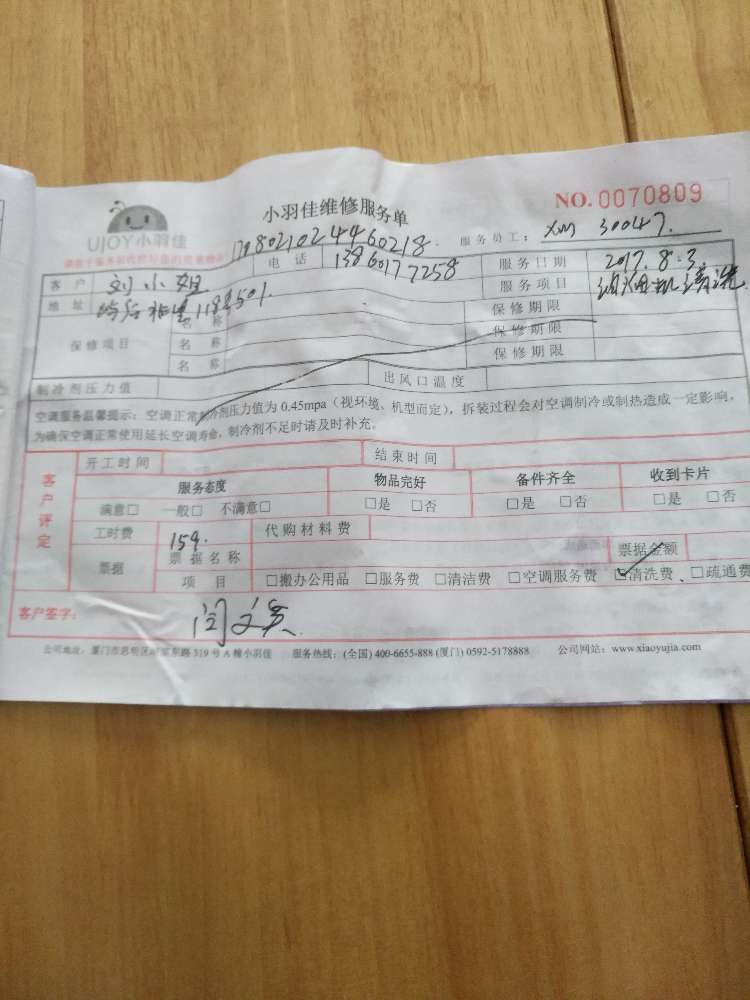 UJOY小羽佳
小羽佳维修服务单
NO.0070809
服务员工: XM 30047.
客户 刘小姐 电话 13860177258 服务日期 2017.8.3
地址 服务项目 油烟机清洗
保修项目 名称 保修期限
名称 保修期限
名称 保修期限
制冷剂压力值 出风口温度
空调服务温馨提示：空调正常制冷剂压力值为 0.45mpa（视环境、机型而定），拆装过程会对空调制冷或制热造成一定影响，
为确保空调正常使用延长空调寿命，制冷剂不足时请及时补充。
客户评定
开工时间 结束时间
服务态度 物品完好 备件齐全 收到卡片
满意□ 一般□ 不满意□ □是 □否 □是 □否 □是 □否
工时费 159. 代购材料费
票据 票据名称 票据金额
项目 □搬办公用品 □服务费 □清洁费 □空调服务费 ☑清洗费、□疏通费
客户签字: 闫文英
服务热线：(全国) 400-6655-888 (厦门) 0592-5178888 公司网站：www.xiaoyujia.com